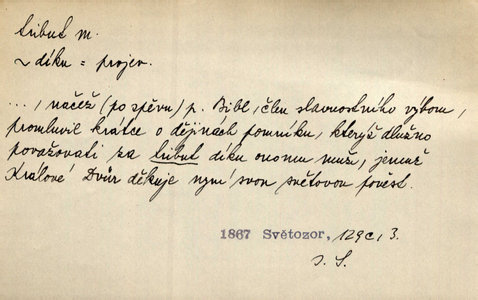 tribut m.
~ díku = projev.
..., načež (po zpěvu) p. Bibl, člen slavnostního výboru,
promluvil krátce o dějinách pomníku, kterýž dlužno
považovati za tribut díku onomu muži, jemuž
Králové Dvůr děkuje nyní svou světovou pověst.
1867 Světozor, 129c, 3.
J. S.